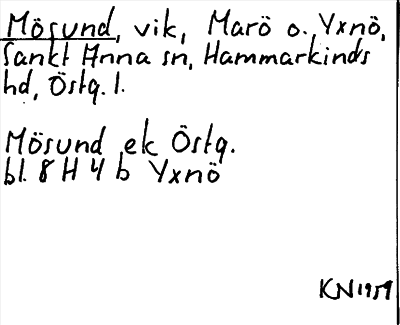 Mösund, vik, Marö o. Yxnö,
Sankt Anna sn, Hammarkinds
hd, Östg. l.
Mösund ek Östg.
bl. 8 H 4 b Yxnö
KN 1959